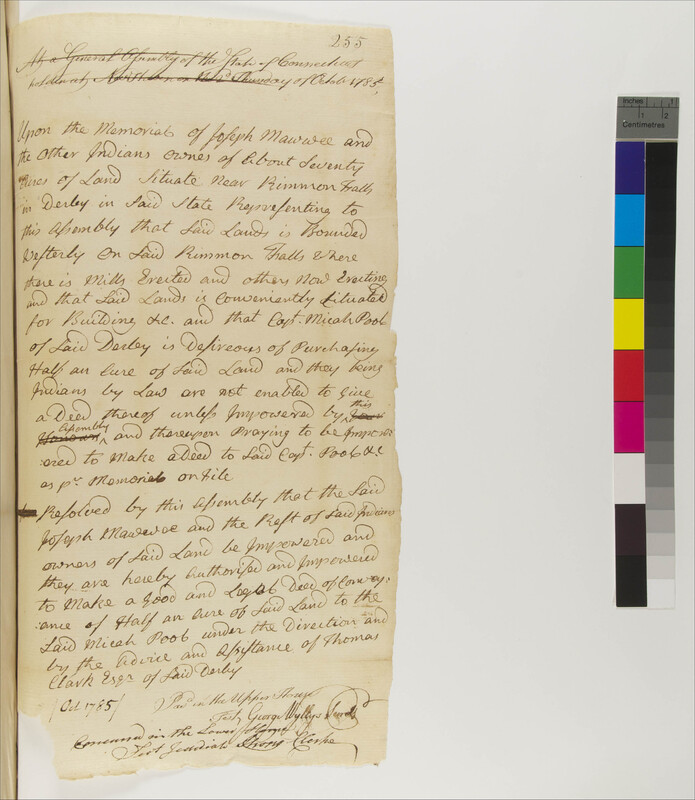 255
At a General Assembly of the State of Connecticut
holden at New Haven on the 2d Thursday of Octobr 1785
Upon the Memorial of Joseph Mauwee and
the Other Indians Owners of About Seventy
Acres of Land Situate Near Rimmon Falls
in Derby in Said State Representing to
this Assembly that Said Lands is Bounded
Westerly On Said Rimmon Falls Where
there is Mills Erected and others Now Erecting
and that Said Lands is Conveniently Situated
for Building &c. and that Capt. Micah Pool
of Said Derby is Desireous of Purchasing
Half an Acre of Said Land and they being
Indians by Law are not enabled to Give
a Deed thereof unless Impowered by this
Assembly and thereupon Praying to be Impow
:ered to Make a Deed to Said Capt. Pool &c
as pr. Memorial on File
Resolved by this Assembly that the Said
Joseph Mauwee and the Rest of Said Indians
owners of Said Land be Impowered and
they are hereby Authorised and Impowered
to Make a Good and Legal Deed of Convey:
:ance of Half an Acre of Said Land to the
Said Micah Pool under the Direction and
by the Advice and Assistance of Thomas
Clark Esqr. of Said Derby
/Oct 1785/
Pass'd in the Upper House
Test George Wyllys Secretd
Concurred in the Lower House
Test Jedidiah Strong Clerke
Inches 1 2
Centimetres